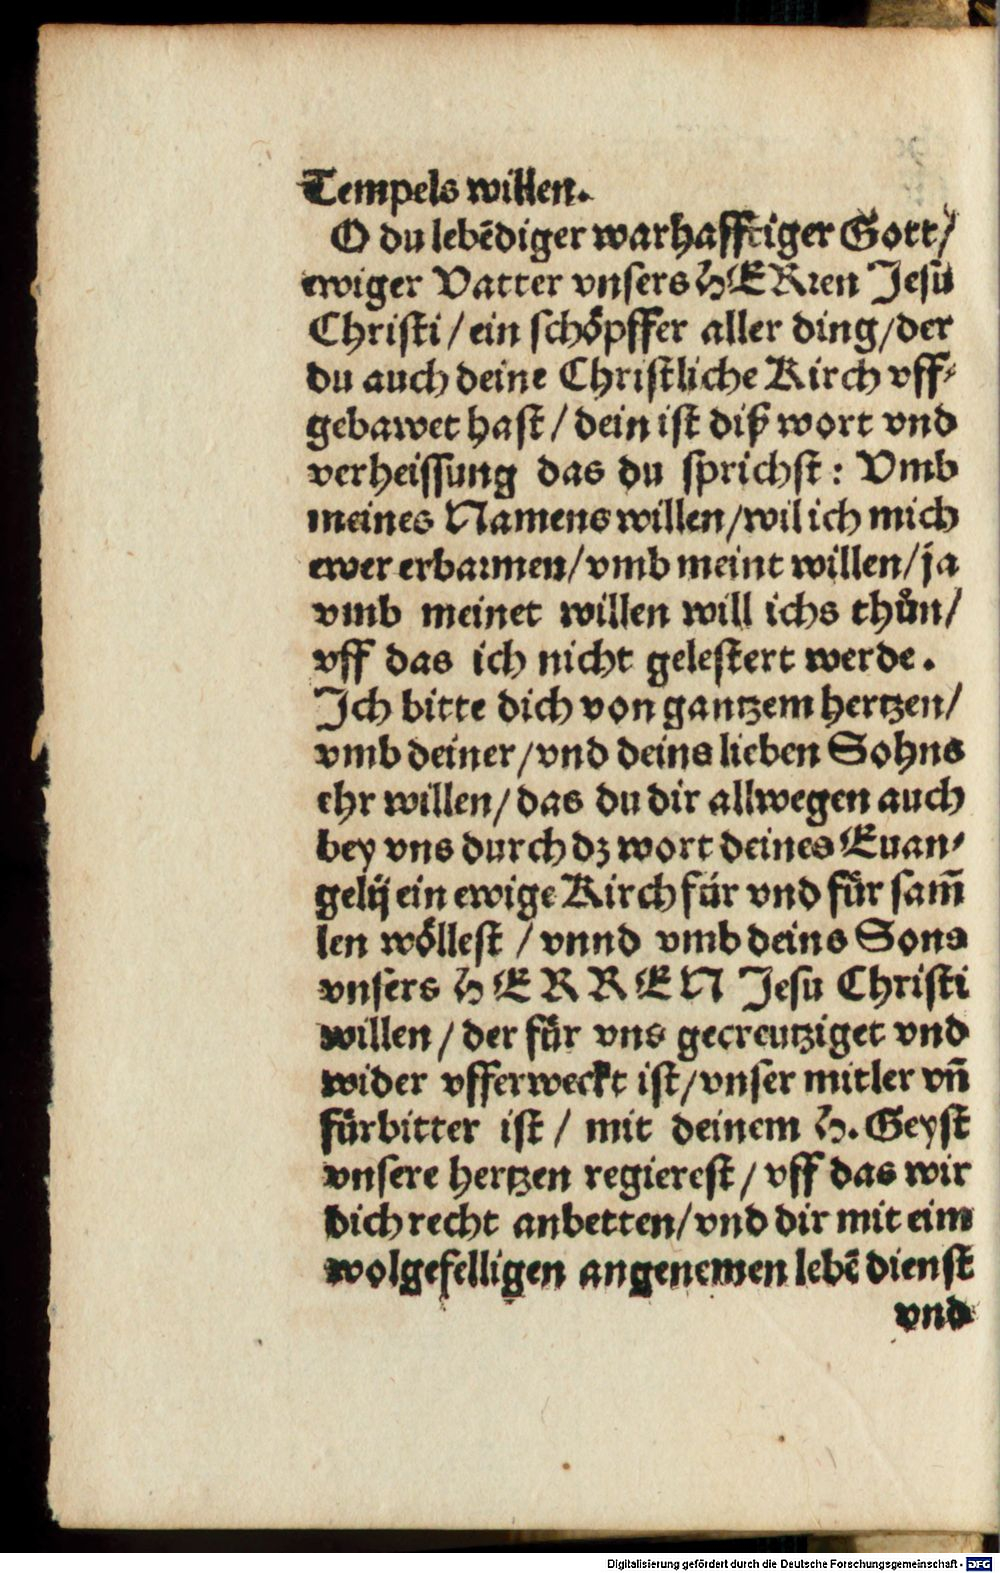 Tempels willen.
O du lebẽdiger warhafftiger Gott/
ewiger Vatter vnsers HERꝛen Jesu
Christi / ein schoͤpffer aller ding/der
du auch deine Christliche Kirch vff⸗
gebawet hast / dein ist diß wort vnd
verheissung das du sprichst : Vmb
meines Namens willen/wil ich mich
ewer erbaꝛmen/vmb meint willen/ja
vmb meinet willen will ichs thuͦn/
vff das ich nicht gelestert werde.
Ich bitte dich von gantzem hertzen/
vmb deiner/vnd deins lieben Sohns
ehr willen/ das du dir allwegen auch
bey vns durch dz wort deines Euan⸗
gelij ein ewige Kirch fuͤr vnd fuͤr sam̃
len woͤllest / vnnd vmb deins Sons
vnsers HERREN Jesu Christi
willen / der fuͤr vns gecreutziget vnd
wider vfferweckt ist/vnser mitler vn̄
fuͤrbitter ist / mit deinem H. Geyst
vnsere hertzen regierest / vff das wir
dich recht anbetten/vnd dir mit eim
wolgefelligen angenemen lebẽ dienst
vnd
Digitalisierung gefördert durch die Deutsche Forschungsgemeinschaft - DFG